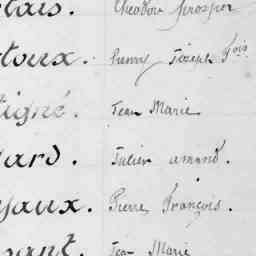 lais. Theodore prosper
toux. Pierre Joseph fois
tigné. Jean Marie
ard. Julien amand.
yaux. Pierre François.
pant. Jean Marie